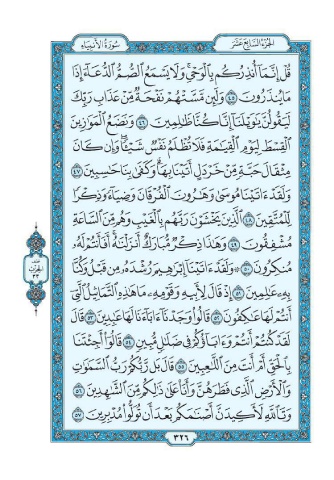 الجزء السابع عشر
سورة الأنبياء
قُلْ إِنَّمَا أُنذِرُكُم بِالْوَحْيِ وَلَا يَسْمَعُ الصُّمُّ الدُّعَاءَ إِذَا
مَا يُنذَرُونَ ٤٥ وَلَئِن مَّسَّتْهُمْ نَفْحَةٌ مِّنْ عَذَابِ رَبِّكَ
لَيَقُولُنَّ يَٰوَيْلَنَا إِنَّا كُنَّا ظَٰلِمِينَ ٤٦ وَنَضَعُ الْمَوَٰزِينَ
الْقِسْطَ لِيَوْمِ الْقِيَٰمَةِ فَلَا تُظْلَمُ نَفْسٌ شَيْـًٔا وَإِن كَانَ
مِثْقَالَ حَبَّةٍ مِّنْ خَرْدَلٍ أَتَيْنَا بِهَا وَكَفَىٰ بِنَا حَٰسِبِينَ ٤٧
وَلَقَدْ ءَاتَيْنَا مُوسَىٰ وَهَٰرُونَ الْفُرْقَانَ وَضِيَاءً وَذِكْرًا
لِّلْمُتَّقِينَ ٤٨ الَّذِينَ يَخْشَوْنَ رَبَّهُم بِالْغَيْبِ وَهُم مِّنَ السَّاعَةِ
مُشْفِقُونَ ٤٩ وَهَٰذَا ذِكْرٌ مُّبَارَكٌ أَنزَلْنَٰهُ أَفَأَنتُمْ لَهُ
مُنكِرُونَ ٥٠ وَلَقَدْ ءَاتَيْنَا إِبْرَٰهِيمَ رُشْدَهُ مِن قَبْلُ وَكُنَّا
بِهِ عَٰلِمِينَ ٥١ إِذْ قَالَ لِأَبِيهِ وَقَوْمِهِ مَا هَٰذِهِ التَّمَاثِيلُ الَّتِي
أَنتُمْ لَهَا عَٰكِفُونَ ٥٢ قَالُوا وَجَدْنَا ءَابَاءَنَا لَهَا عَٰبِدِينَ ٥٣ قَالَ
لَقَدْ كُنتُمْ أَنتُمْ وَءَابَاؤُكُمْ فِي ضَلَٰلٍ مُّبِينٍ ٥٤ قَالُوا أَجِئْتَنَا
بِالْحَقِّ أَمْ أَنتَ مِنَ اللَّٰعِبِينَ ٥٥ قَالَ بَل رَّبُّكُمْ رَبُّ السَّمَٰوَٰتِ
وَالْأَرْضِ الَّذِي فَطَرَهُنَّ وَأَنَا عَلَىٰ ذَٰلِكُم مِّنَ الشَّٰهِدِينَ ٥٦
وَتَاللَّهِ لَأَكِيدَنَّ أَصْنَٰمَكُم بَعْدَ أَن تُوَلُّوا مُدْبِرِينَ ٥٧
٣٢٦